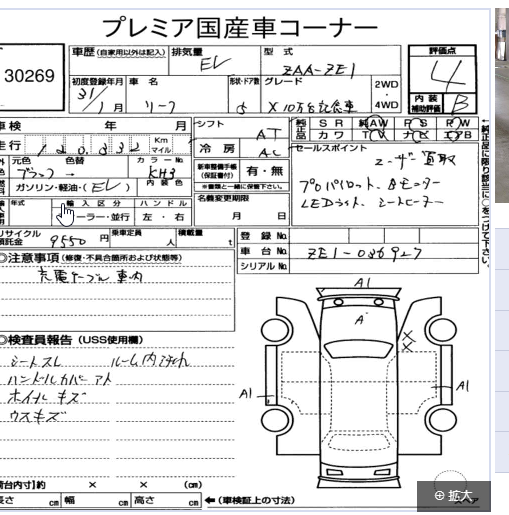 プレミア国産車コーナー
30269
車歴 (自家用以外は記入) 排気量 型式 評価点
EV ZAA-ZE1 4
初度登録年月 車名 形状・ドア数 グレード 2WD・4WD 内装補助評価 B
31/1月 リーフ 5 X 10万台記念車
車検 年 月 シフト AT
純正品 SR 純AW PS PW
カワ TV ナビ エアB
走行 Km マイル
冷房 AC
セールスポイント
ユーザー買取
元色 色替 カラーNo.
ブラック → KH3
新車整備手帳(保証書付) 有・無
※書類と一緒に保管下さい。
プロパイロット、
LEDライト、シートヒーター
ガソリン・軽油・(EV) 内装色
名義変更期限
月 日
年式 輸入区分 ハンドル
ーラー・並行 左・右
リサイクル預託金 9550 円 乗車定員 人 積載量 t
登録No.
車台No. ZE1-036927
シリアルNo.
◎注意事項 (修復・不具合箇所および状態等)
充電ケーブル 車内
◎検査員報告 (USS使用欄)
シートスレ
ハンドルカバーアト
ホイルキズ
ウスキズ
A1
A
A1
A1
荷台内寸】約 × × (cm)
長さ cm 幅 cm 高さ cm ←(車検証上の寸法)
⊕ 拡大